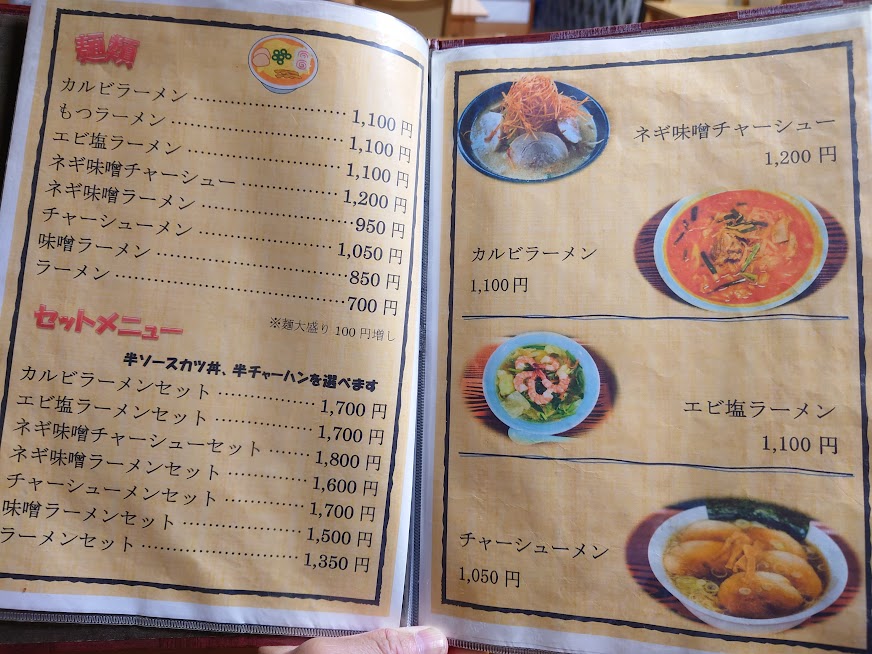 麺類
カルビラーメン 1,100 円
もつラーメン 1,100 円
エビ塩ラーメン 1,100 円
ネギ味噌チャーシュー 1,200 円
ネギ味噌ラーメン 950 円
チャーシューメン 1,050 円
味噌ラーメン 850 円
ラーメン 700 円
※麺大盛り 100 円増し
セットメニュー
半ソースカツ丼、半チャーハンを選べます
カルビラーメンセット 1,700 円
エビ塩ラーメンセット 1,700 円
ネギ味噌チャーシューセット 1,800 円
ネギ味噌ラーメンセット 1,600 円
チャーシューメンセット 1,700 円
味噌ラーメンセット 1,500 円
ラーメンセット 1,350 円
ネギ味噌チャーシュー
1,200 円
カルビラーメン
1,100 円
エビ塩ラーメン
1,100 円
チャーシューメン
1,050 円